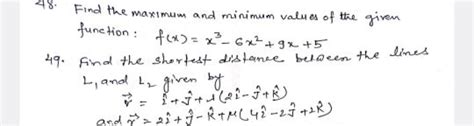 48. Find the maximum and minimum values of the given
function: f(x) = x³ - 6x² + 9x + 5
49. Find the shortest distance between the lines
L₁ and L₂ given by
r⃗ = î + ĵ + λ(2î - ĵ + k̂)
and r⃗ = 2î + ĵ - k̂ + μ(4î - 2ĵ + 2k̂)